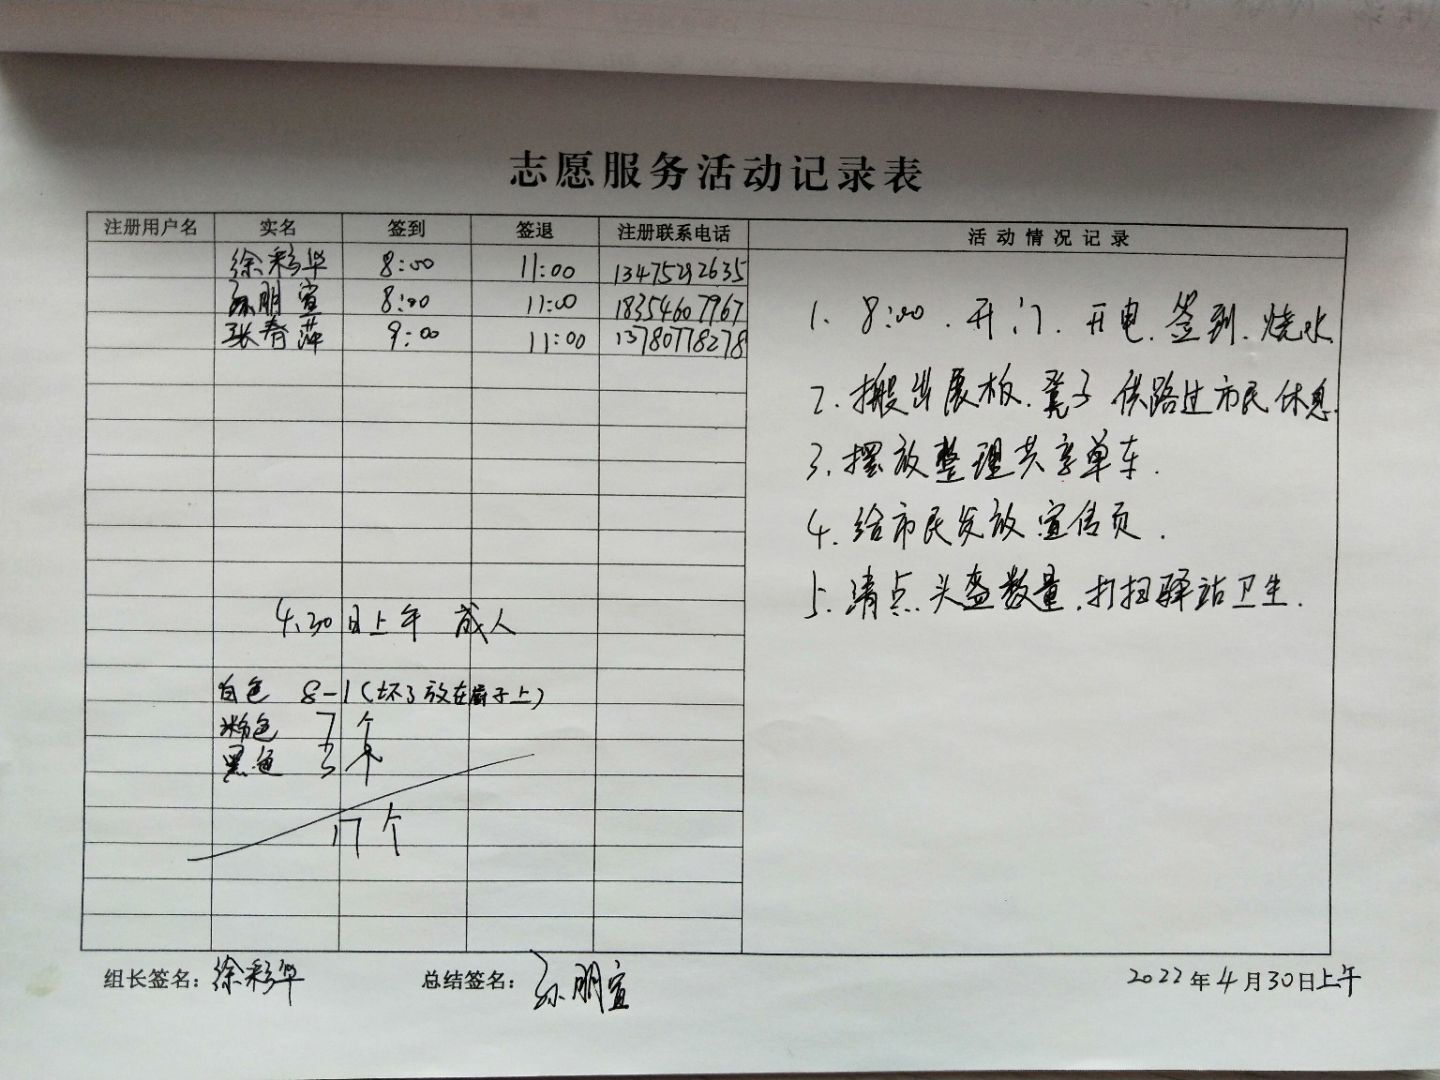 志愿服务活动记录表
注册用户名 实名 签到 签退 注册联系电话 活动情况记录
徐彩华 8:00 11:00 13475292635
孙明宣 8:00 11:00 18354607967
张春萍 9:00 11:00 13780778278
1. 8:00. 开门. 开电. 签到. 烧水
2. 搬出展板. 凳子 供路过市民休息.
3. 摆放整理共享单车.
4. 给市民发放宣传页.
5. 清点头盔数量. 打扫驿站卫生.
4.30日上午 成人
白色 8-1(坏了放在橱子上)
粉色 7个
黑色 3个
17个
组长签名: 徐彩华 总结签名: 孙明宣 2022年4月30日上午